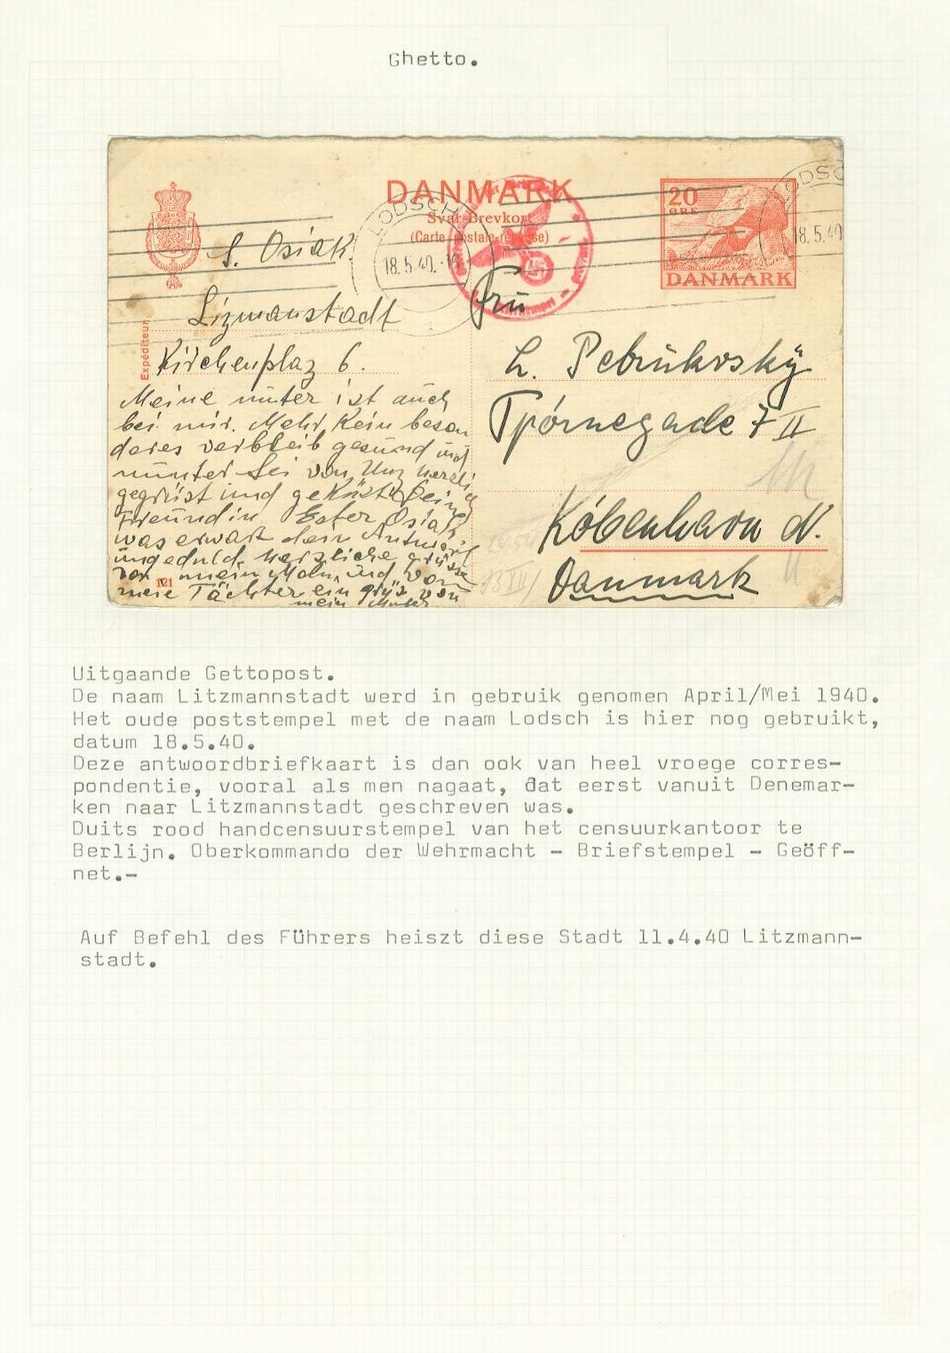 Ghetto.
DANMARK
Svar-Brevkort
(Carte postale-réponse)
20
ØRE
DANMARK
LODSCH
18.5.40.
LODSC
18.5.40
S. Osiak
Lizmanstadt
Expéditeur
Kirchenplaz 6.
Frŭ
L. Pebrŭkovsky
Tpórnegade 7 II
Kóbenhavn N.
Danmark
Meine muter ist auch
bei mir. Mehr Kein beson
deres verbleib gesund und
munter Sei von Unz herzlich
gegrüst und geküst Deine
Freundin Ester Osiak
was erwart dein Antwort
ungeduld. herzliche grüsse
von mein Man und von
meie Töchter ein grüs von
mein Muter
121
Uitgaande Gettopost.
De naam Litzmannstadt werd in gebruik genomen April/Mei 1940.
Het oude poststempel met de naam Lodsch is hier nog gebruikt,
datum 18.5.40.
Deze antwoordbriefkaart is dan ook van heel vroege corres-
pondentie, vooral als men nagaat, dat eerst vanuit Denemar-
ken naar Litzmannstadt geschreven was.
Duits rood handcensuurstempel van het censuurkantoor te
Berlijn. Oberkommando der Wehrmacht - Briefstempel - Geöff-
net.-
Auf Befehl des Führers heiszt diese Stadt 11.4.40 Litzmann-
stadt.